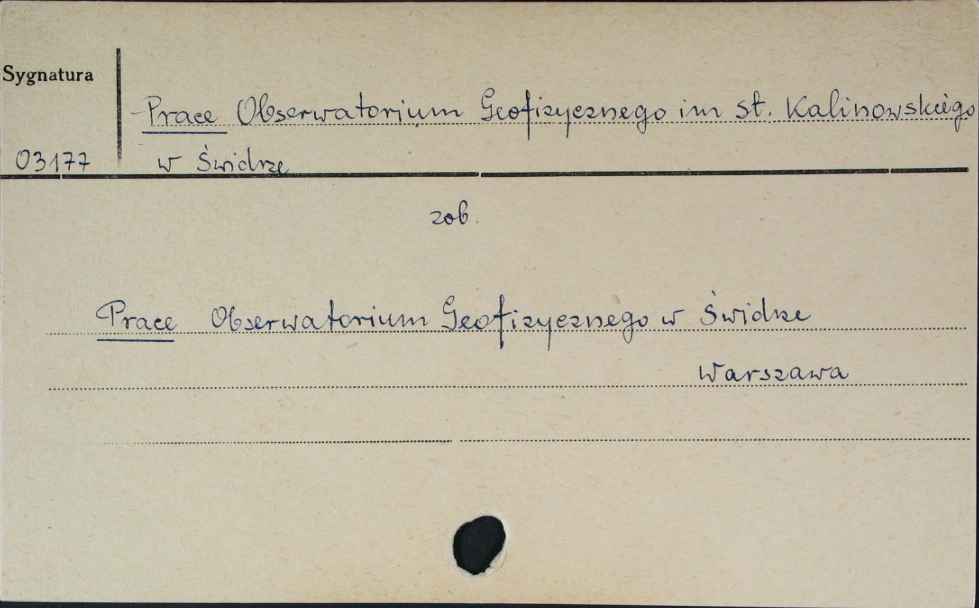 Sygnatura
Prace Obserwatorium Geofizycznego im St. Kalinowskiego
03177 w Świdrze
zob.
Prace Obserwatorium Geofizycznego w Świdrze
Warszawa